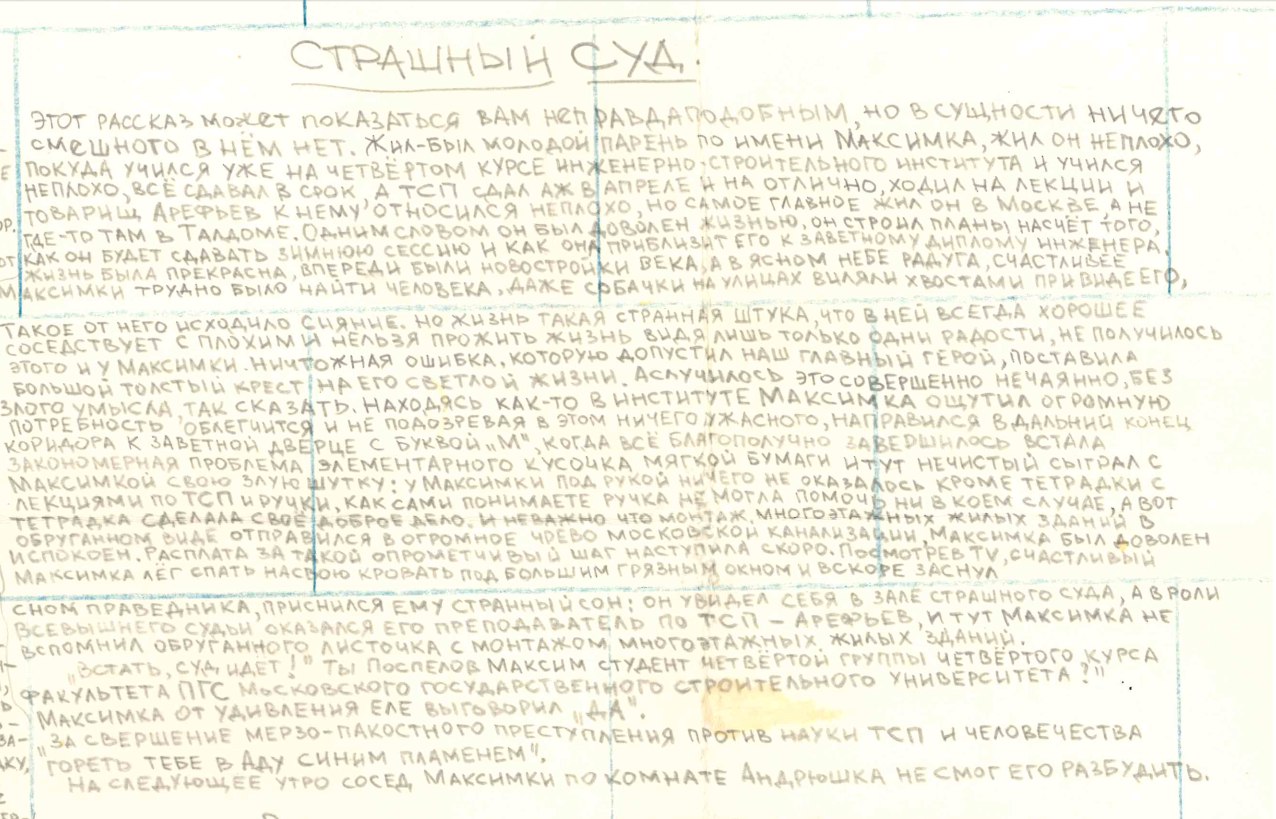 СТРАШНЫЙ СУД.
ЭТОТ РАССКАЗ МОЖЕТ ПОКАЗАТЬСЯ ВАМ НЕПРАВДАПОДОБНЫМ, НО В СУЩНОСТИ НИЧЕГО
СМЕШНОГО В НЁМ НЕТ. ЖИЛ-БЫЛ МОЛОДОЙ ПАРЕНЬ ПО ИМЕНИ МАКСИМКА, ЖИЛ ОН НЕПЛОХО,
ПОКУДА УЧИЛСЯ УЖЕ НА ЧЕТВЁРТОМ КУРСЕ ИНЖЕНЕРНО-СТРОИТЕЛЬНОГО ИНСТИТУТА И УЧИЛСЯ
НЕПЛОХО, ВСЁ СДАВАЛ В СРОК, А ТСП СДАЛ АЖ В АПРЕЛЕ И НА ОТЛИЧНО, ХОДИЛ НА ЛЕКЦИИ И
ТОВАРИЩ АРЕФЬЕВ К НЕМУ ОТНОСИЛСЯ НЕПЛОХО, НО САМОЕ ГЛАВНОЕ ЖИЛ ОН В МОСКВЕ, А НЕ
ГДЕ-ТО ТАМ В ТАЛДОМЕ. ОДНИМ СЛОВОМ ОН БЫЛ ДОВОЛЕН ЖИЗНЬЮ. ОН СТРОИЛ ПЛАНЫ НАСЧЁТ ТОГО,
КАК ОН БУДЕТ СДАВАТЬ ЗИМНЮЮ СЕССИЮ И КАК ОНА ПРИБЛИЗИТ ЕГО К ЗАВЕТНОМУ ДИПЛОМУ ИНЖЕНЕРА.
ЖИЗНЬ БЫЛА ПРЕКРАСНА, ВПЕРЕДИ БЫЛИ НОВОСТРОЙКИ ВЕКА, А В ЯСНОМ НЕБЕ РАДУГА, СЧАСТЛИВЕЕ
МАКСИМКИ ТРУДНО БЫЛО НАЙТИ ЧЕЛОВЕКА, ДАЖЕ СОБАЧКИ НА УЛИЦАХ ВИЛЯЛИ ХВОСТАМИ ПРИ ВИДЕ ЕГО,
ТАКОЕ ОТ НЕГО ИСХОДИЛО СИЯНИЕ. НО ЖИЗНЬ ТАКАЯ СТРАННАЯ ШТУКА, ЧТО В НЕЙ ВСЕГДА ХОРОШЕЕ
СОСЕДСТВУЕТ С ПЛОХИМ И НЕЛЬЗЯ ПРОЖИТЬ ЖИЗНЬ ВИДЯ ЛИШЬ ТОЛЬКО ОДНИ РАДОСТИ, НЕ ПОЛУЧИЛОСЬ
ЭТОГО И У МАКСИМКИ. НИЧТОЖНАЯ ОШИБКА, КОТОРУЮ ДОПУСТИЛ НАШ ГЛАВНЫЙ ГЕРОЙ, ПОСТАВИЛА
БОЛЬШОЙ ТОЛСТЫЙ КРЕСТ НА ЕГО СВЕТЛОЙ ЖИЗНИ. А СЛУЧИЛОСЬ ЭТО СОВЕРШЕННО НЕЧАЯННО, БЕЗ
ЗЛОГО УМЫСЛА, ТАК СКАЗАТЬ. НАХОДЯСЬ КАК-ТО В ИНСТИТУТЕ МАКСИМКА ОЩУТИЛ ОГРОМНУЮ
ПОТРЕБНОСТЬ ОБЛЕГЧИТСЯ И НЕ ПОДОЗРЕВАЯ В ЭТОМ НИЧЕГО УЖАСНОГО, НАПРАВИЛСЯ В ДАЛЬНИЙ КОНЕЦ
КОРИДОРА К ЗАВЕТНОЙ ДВЕРЦЕ С БУКВОЙ „М", КОГДА ВСЁ БЛАГОПОЛУЧНО ЗАВЕРШИЛОСЬ ВСТАЛА
ЗАКОНОМЕРНАЯ ПРОБЛЕМА ЭЛЕМЕНТАРНОГО КУСОЧКА МЯГКОЙ БУМАГИ И ТУТ НЕЧИСТЫЙ СЫГРАЛ С
МАКСИМКОЙ СВОЮ ЗЛУЮ ШУТКУ: У МАКСИМКИ ПОД РУКОЙ НИЧЕГО НЕ ОКАЗАЛОСЬ КРОМЕ ТЕТРАДКИ С
ЛЕКЦИЯМИ ПО ТСП И РУЧКИ, КАК САМИ ПОНИМАЕТЕ РУЧКА НЕ МОГЛА ПОМОЧЬ НИ В КОЕМ СЛУЧАЕ, А ВОТ
ТЕТРАДКА СДЕЛАЛА СВОЁ ДОБРОЕ ДЕЛО. И НЕВАЖНО ЧТО МОНТАЖ МНОГОЭТАЖНЫХ ЖИЛЫХ ЗДАНИЙ В
ОБРУГАННОМ ВИДЕ ОТПРАВИЛСЯ В ОГРОМНОЕ ЧРЕВО МОСКОВСКОЙ КАНАЛИЗАЦИИ, МАКСИМКА БЫЛ ДОВОЛЕН
И СПОКОЕН. РАСПЛАТА ЗА ТАКОЙ ОПРОМЕТЧИВЫЙ ШАГ НАСТУПИЛА СКОРО. ПОСМОТРЕВ TV, СЧАСТЛИВЫЙ
МАКСИМКА ЛЁГ СПАТЬ НА СВОЮ КРОВАТЬ ПОД БОЛЬШИМ ГРЯЗНЫМ ОКНОМ И ВСКОРЕ ЗАСНУЛ
СНОМ ПРАВЕДНИКА, ПРИСНИЛСЯ ЕМУ СТРАННЫЙ СОН: ОН УВИДЕЛ СЕБЯ В ЗАЛЕ СТРАШНОГО СУДА, А В РОЛИ
ВСЕВЫШНЕГО СУДЬИ ОКАЗАЛСЯ ЕГО ПРЕПОДАВАТЕЛЬ ПО ТСП – АРЕФЬЕВ, И ТУТ МАКСИМКА НЕ
ВСПОМНИЛ ОБРУГАННОГО ЛИСТОЧКА С МОНТАЖОМ МНОГОЭТАЖНЫХ ЖИЛЫХ ЗДАНИЙ.
„ВСТАТЬ, СУД ИДЕТ!" ТЫ ПОСПЕЛОВ МАКСИМ СТУДЕНТ ЧЕТВЁРТОЙ ГРУППЫ ЧЕТВЁРТОГО КУРСА
ФАКУЛЬТЕТА ПГС МОСКОВСКОГО ГОСУДАРСТВЕННОГО СТРОИТЕЛЬНОГО УНИВЕРСИТЕТА?"
МАКСИМКА ОТ УДИВЛЕНИЯ ЕЛЕ ВЫГОВОРИЛ „ДА".
„ЗА СВЕРШЕНИЕ МЕРЗО-ПАКОСТНОГО ПРЕСТУПЛЕНИЯ ПРОТИВ НАУКИ ТСП И ЧЕЛОВЕЧЕСТВА
ГОРЕТЬ ТЕБЕ В АДУ СИНИМ ПЛАМЕНЕМ".
НА СЛЕДУЮЩЕЕ УТРО СОСЕД МАКСИМКИ ПО КОМНАТЕ АНДРЮШКА НЕ СМОГ ЕГО РАЗБУДИТЬ.